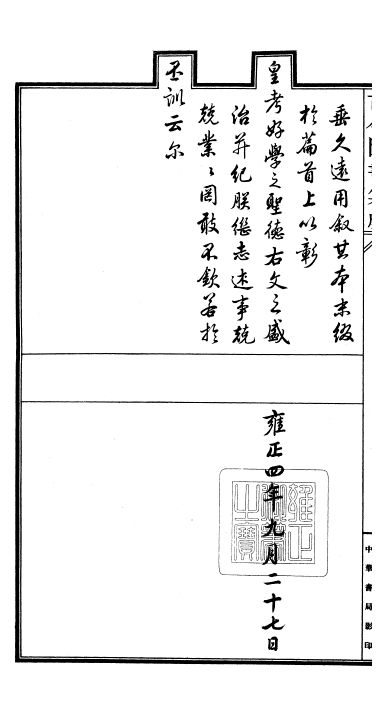 垂久遠用叙其本末綴
於篇首上以彰
皇考好學之聖德右文之盛
治并紀朕繼志述事兢
兢業〻罔敢不欽若於
丕訓云尔
雍正四年九月二十七日
雍正御筆之寶
中華書局影印